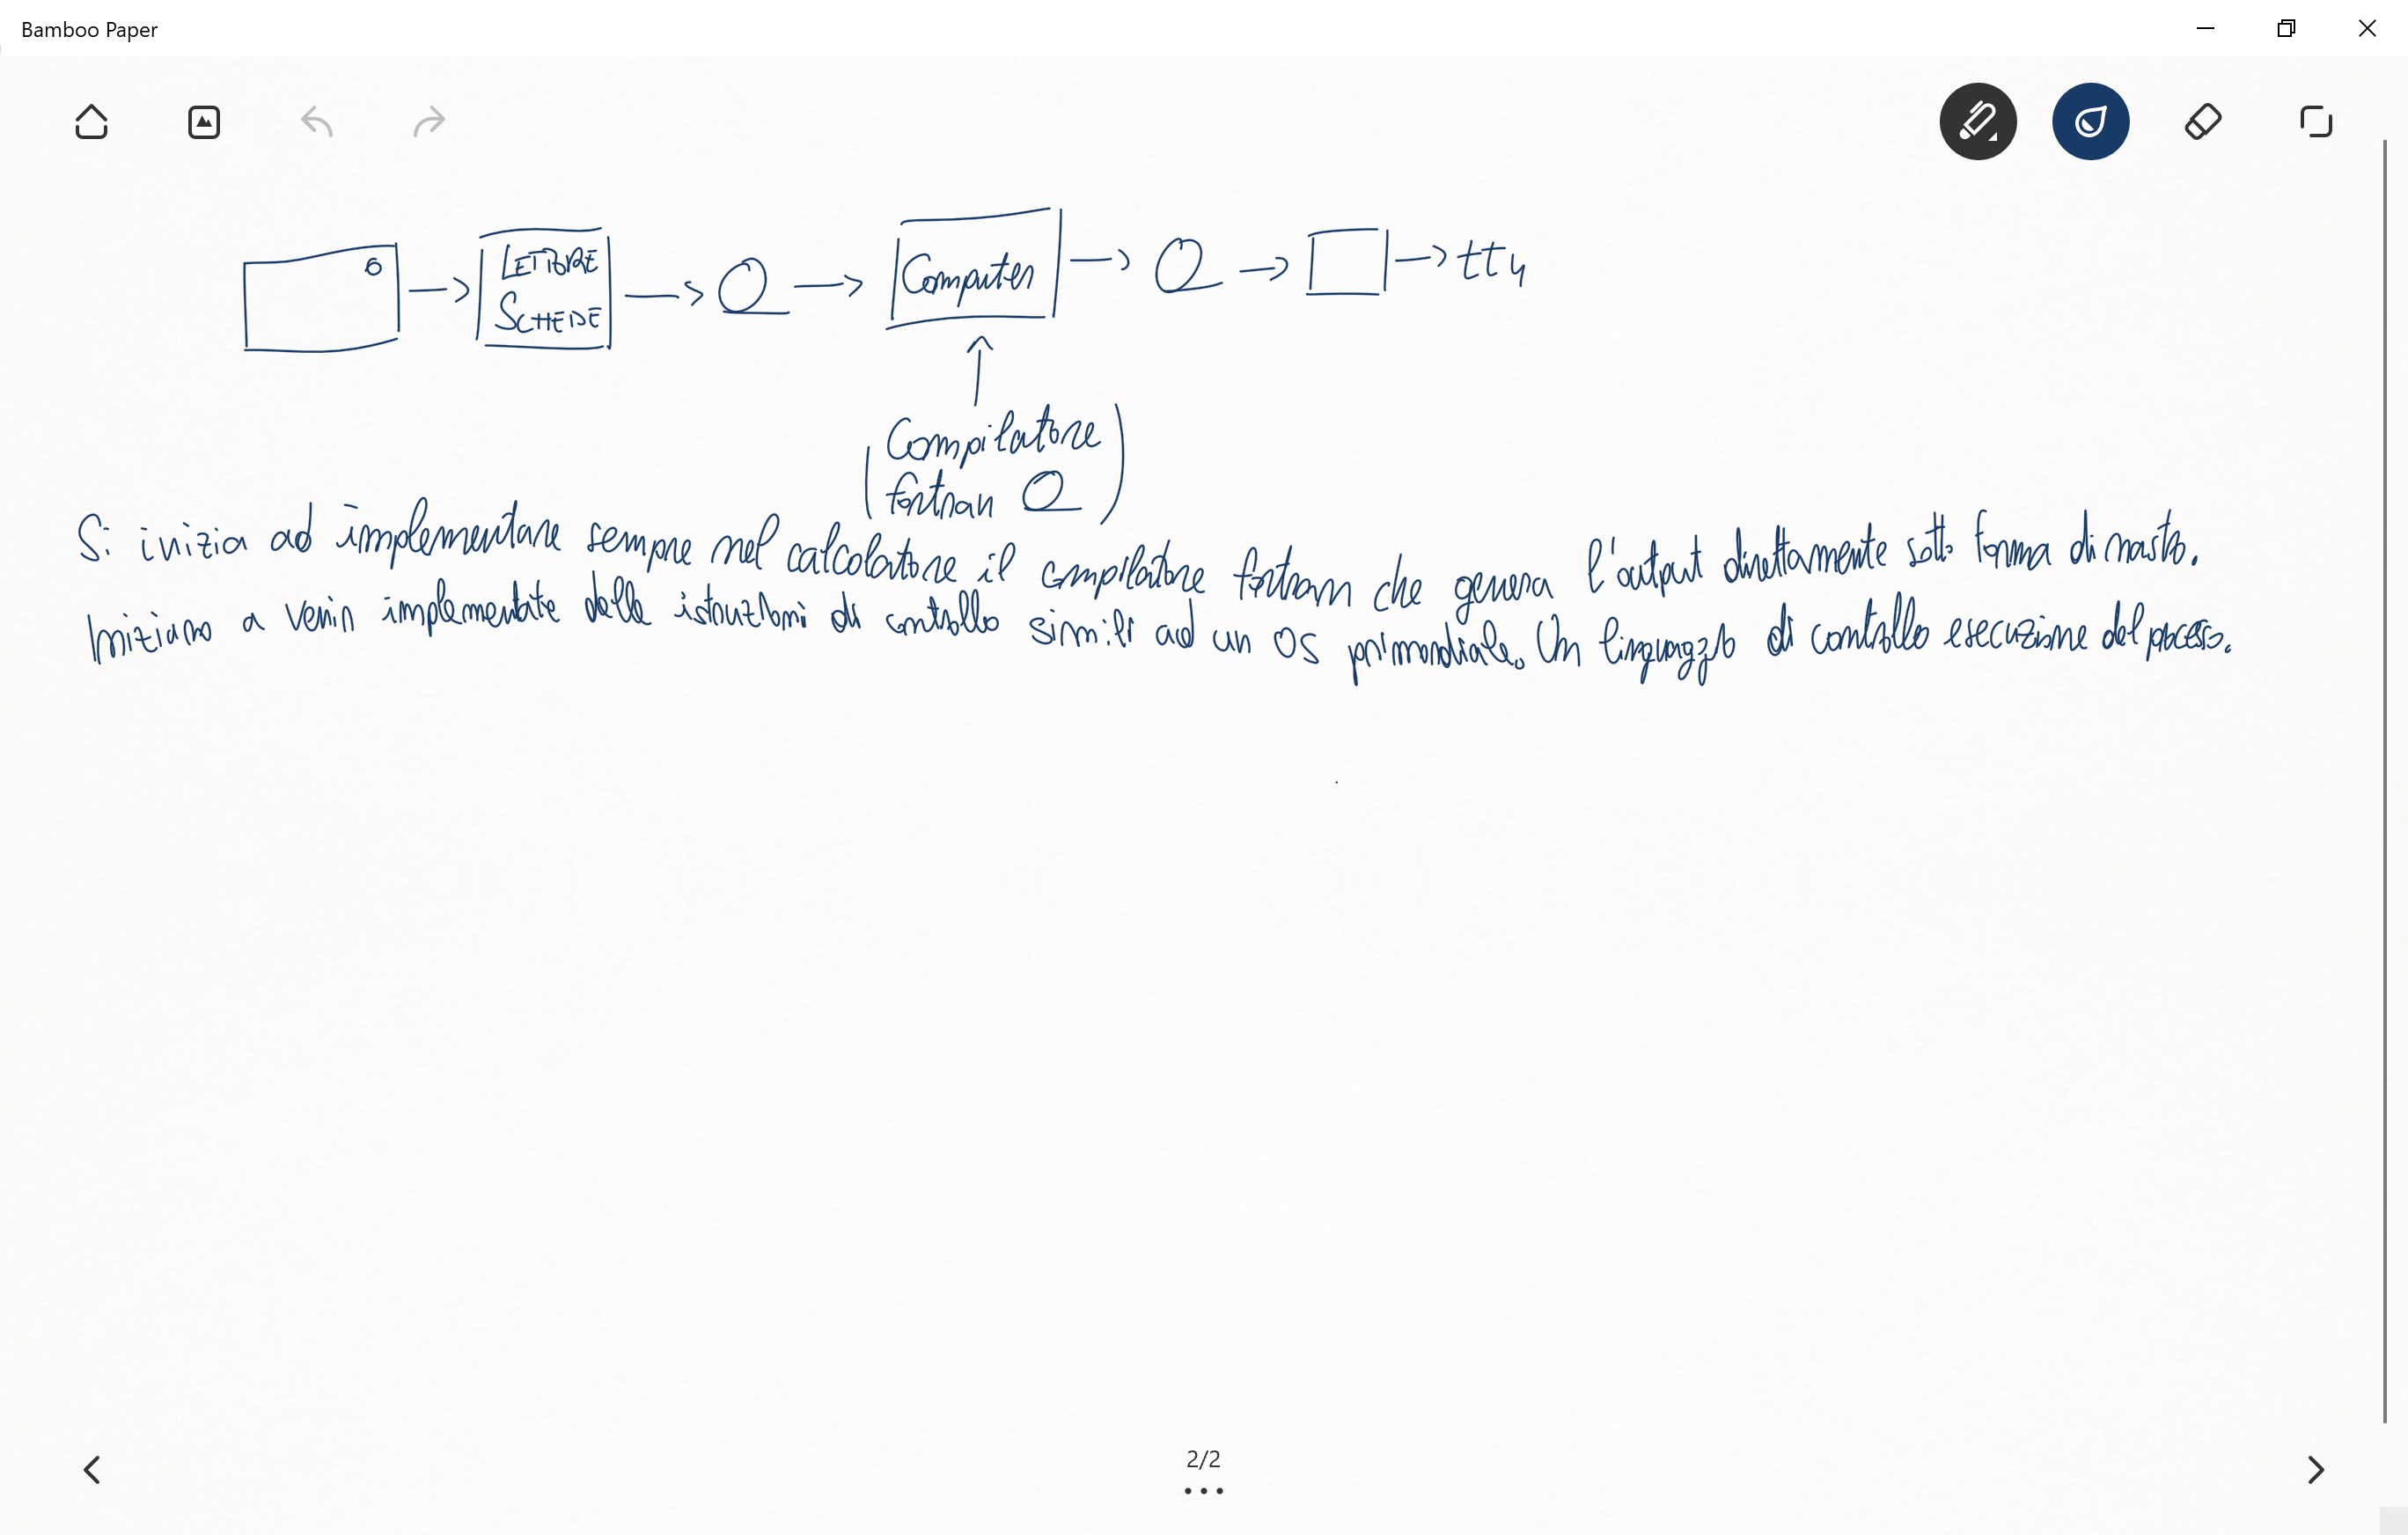 Bamboo Paper
LETTORE
SCHEDE
Computer
tty
Compilatore
fortran
Si inizia ad implementare sempre nel calcolatore il compilatore fortran che genera l'output direttamente sotto forma di nastro.
Iniziano a venir implementate delle istruzioni di controllo simili ad un OS primordiale. Un linguaggio di controllo esecuzione del processo.
2/2